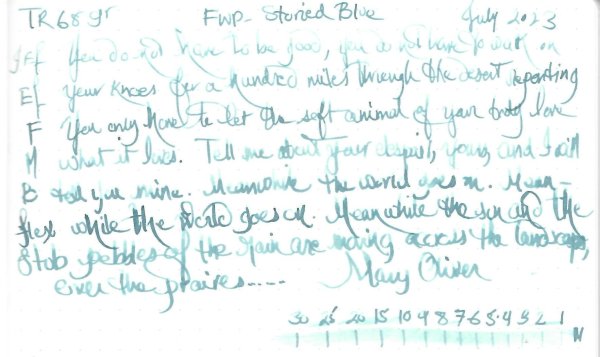 TR 68gr FWP- Storied Blue July 2023
EF You do not have to be good, you do not have to walk on
EF your knees for a hundred miles through the desert repenting
F You only have to let the soft animal of your body love
M what it loves. Tell me about your despair, yours, and I will
B tell you mine. Meanwhile the world goes on. Mean-
flex while the world goes on. Meanwhile the sun and the
Stub pebbles of the rain are moving across the landscape,
over the prairies..... Mary Oliver
30 25 20 15 10 9 8 7 6 5 4 3 2 1
N